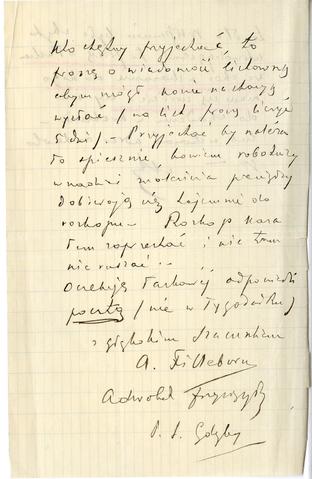 kto chętny przyjechać, to
proszę o wiadomość listowną
abym mógł konie na stację
wysłać / na list proszę liczyć
5 dni /. – Przyjechać by należało
to spiesznie, bowiem robotnicy
w nadziei znalezienia pieniędzy
dobierają się tajemnie do
rozkopu – Rozkop kazałem
zaprzestać i nic tam
nie ruszać ..
Oczekuję łaskawej odpowiedzi
pocztą / nie w Tygodniku /
z głębokim szacunkiem
A. Filleborn
Adwokat przysięgły